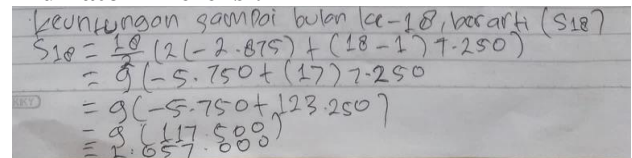 keuntungan sampai bulan ke-18, berarti (S18)
S18 = 18/2 (2(-2.875) + (18-1) 7.250)
= 9(-5.750 + (17) 7.250
= 9(-5.750 + 123.250)
= 9 (117.500)
= 1.057.000